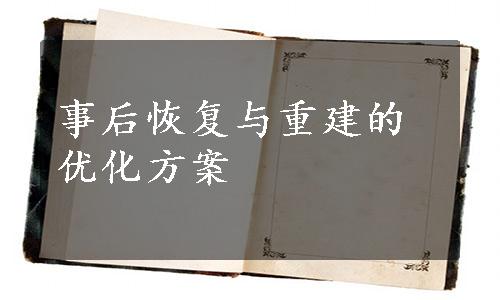 事后恢复与重建的
优化方案